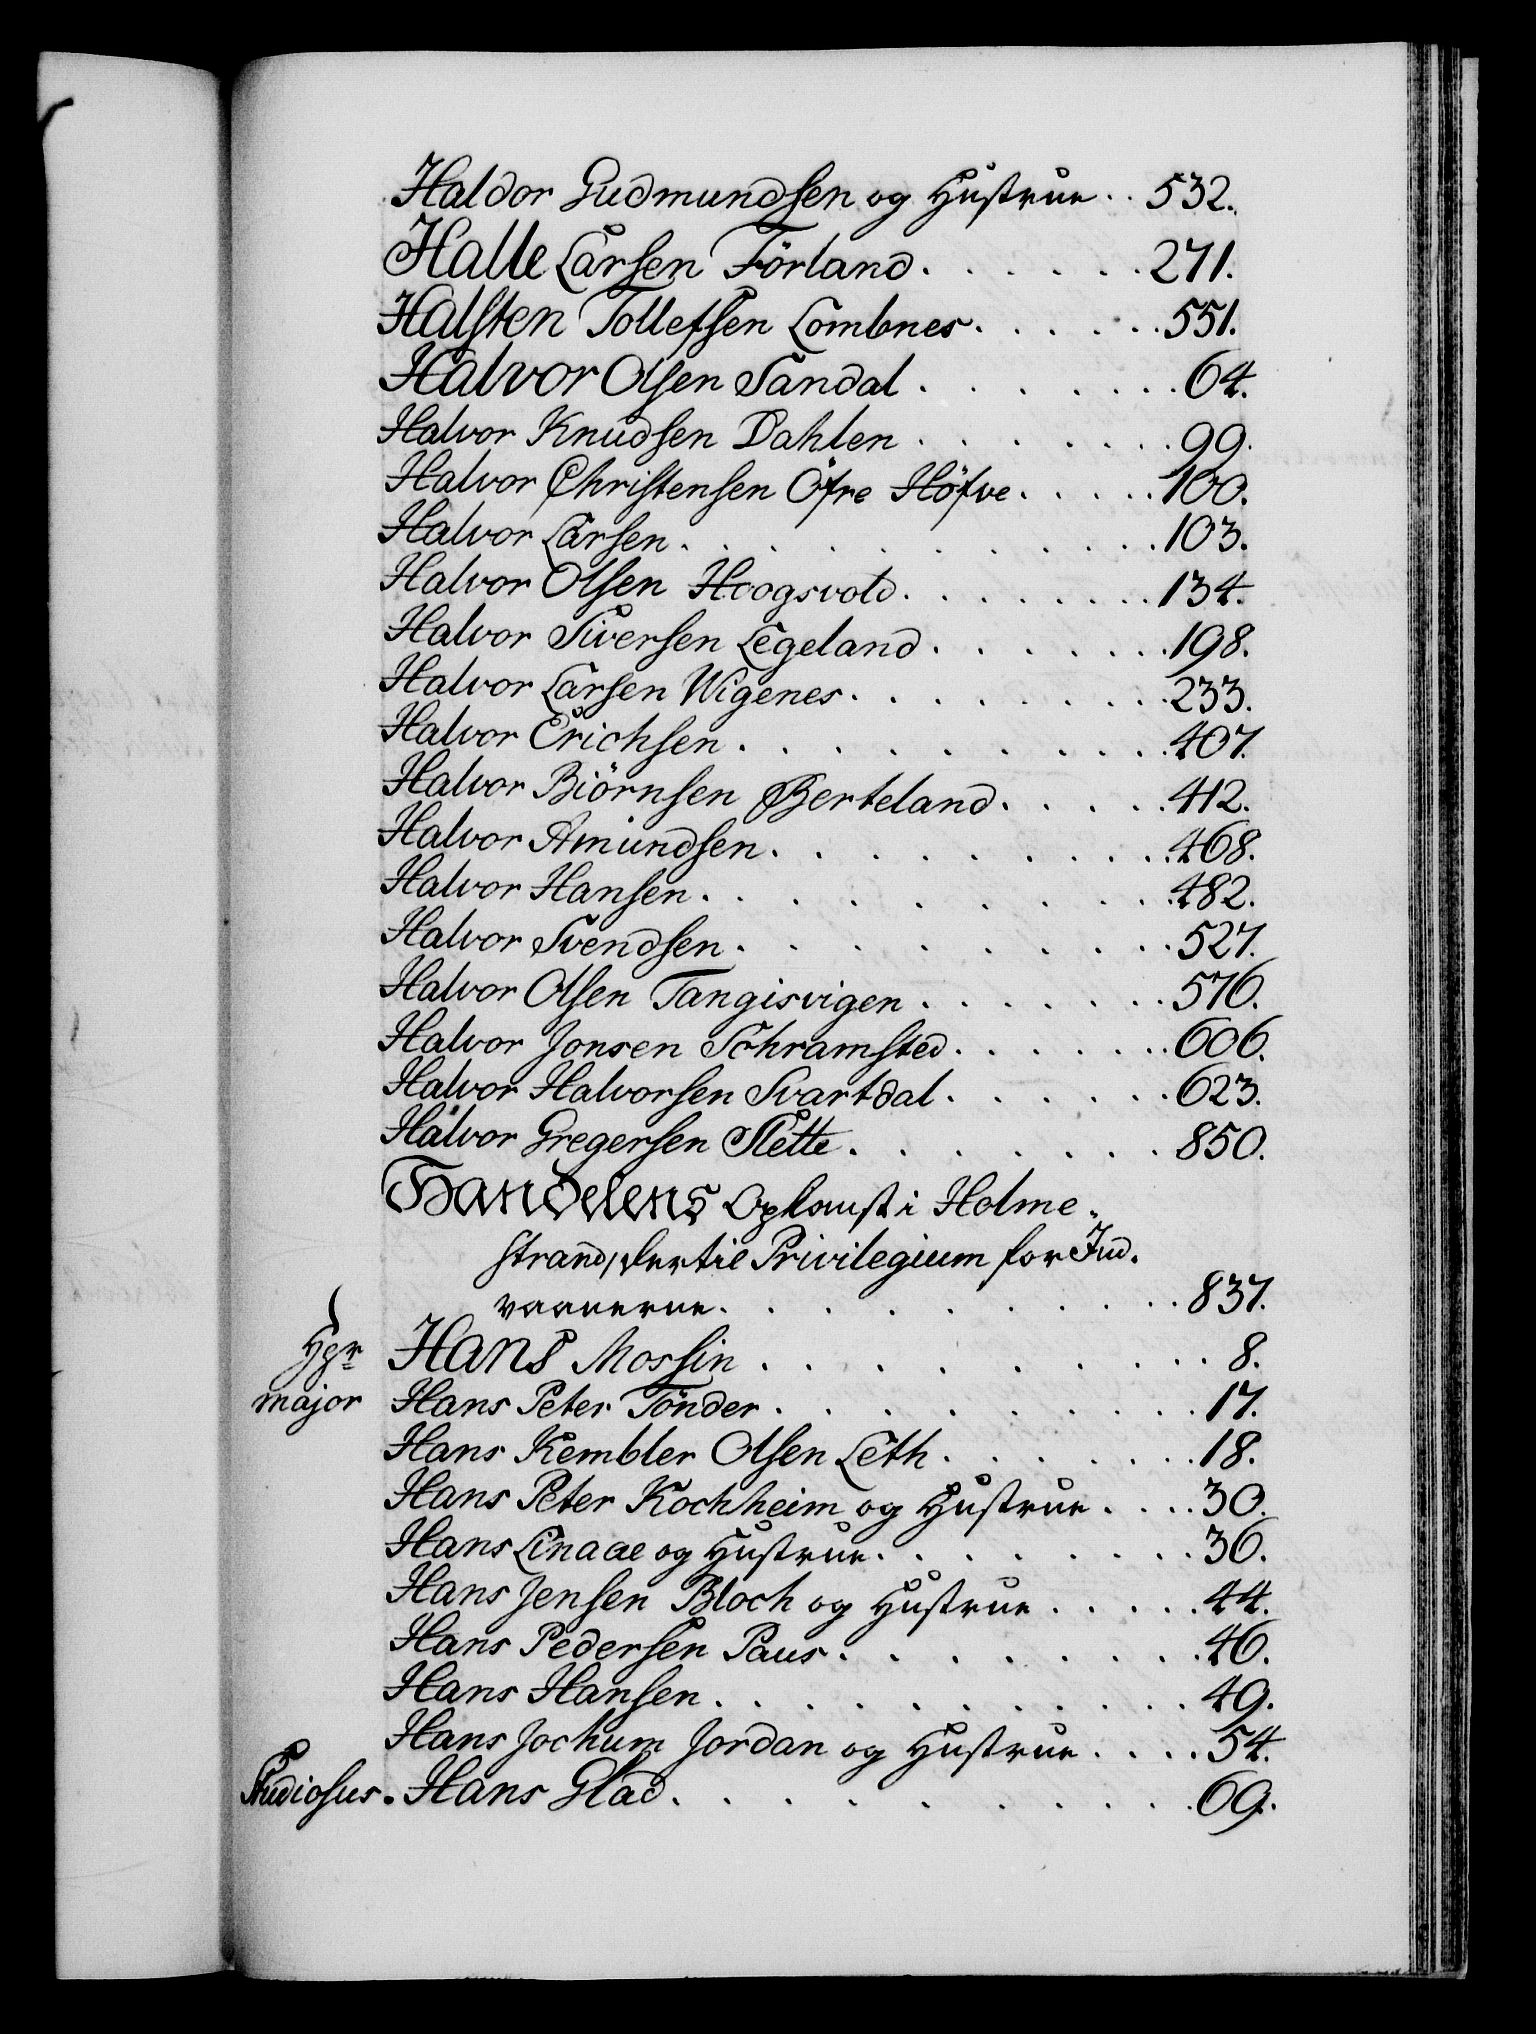 Haldor Gudmundsen og Hustrue . . 532.
Halle Larsen Förland . . . . . . 271.
Halsten Tollefsen Lombnes . . . . . . 551.
Halvor Olsen Sandal . . . . . . . . 64.
Halvor Knudsen Dahlen . . . . . . . . 99.
Halvor Christensen Öfre Höfve . . . . . 100.
Halvor Larsen . . . . . . . . . . 103.
Halvor Olsen Hoogsvold . . . . . . . . 134.
Halvor Siversen Legeland . . . . . . . 198.
Halvor Larsen Wigenes . . . . . . . . 233.
Halvor Erichsen . . . . . . . . . 407.
Halvor Biörnsen Berteland . . . . . 412.
Halvor Amundsen . . . . . . . . . 468.
Halvor Hansen . . . . . . . . . . 482.
Halvor Svendsen . . . . . . . . . 527.
Halvor Olsen Tangisvigen . . . . . . . 576.
Halvor Jonsen Schramsted . . . . . . 606.
Halvor Halvorsen Svartdal . . . . . . 623.
Halvor Gregersen Slette . . . . . . . 850.
Handelens Opkomst i Holme-
strand, dertil Privilegium for Ind-
vaanerne . . . . . . . . . . 837.
Hgr Hans Mossin . . . . . . . . . 8.
major Hans Peter Tönder . . . . . . . . . 17.
Hans Kembler Olsen Leth . . . . . . . 18.
Hans Peter Kochheim og Hustrue . . . . 30.
Hans Linaae og Hustrue . . . . . . . . 36.
Hans Jensen Bloch og Hustrue . . . . . 44.
Hans Pedersen Paus . . . . . . . . 46.
Hans Hansen . . . . . . . . . . 49.
Hans Jochum Jordan og Hustrue . . . . 54.
Studiosus. Hans Glad . . . . . . . . . . 69.